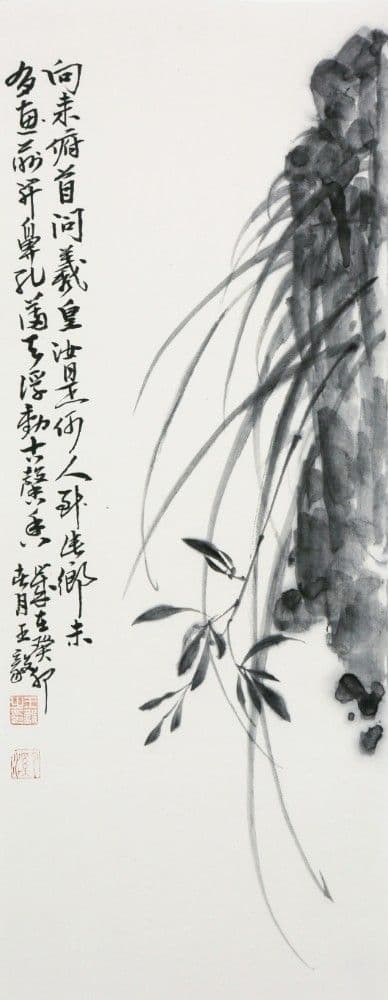 向来俯首问羲皇汝是何人到此鄉未
有画前开鼻孔满天浮動古馨香
歲在癸卯
春月王